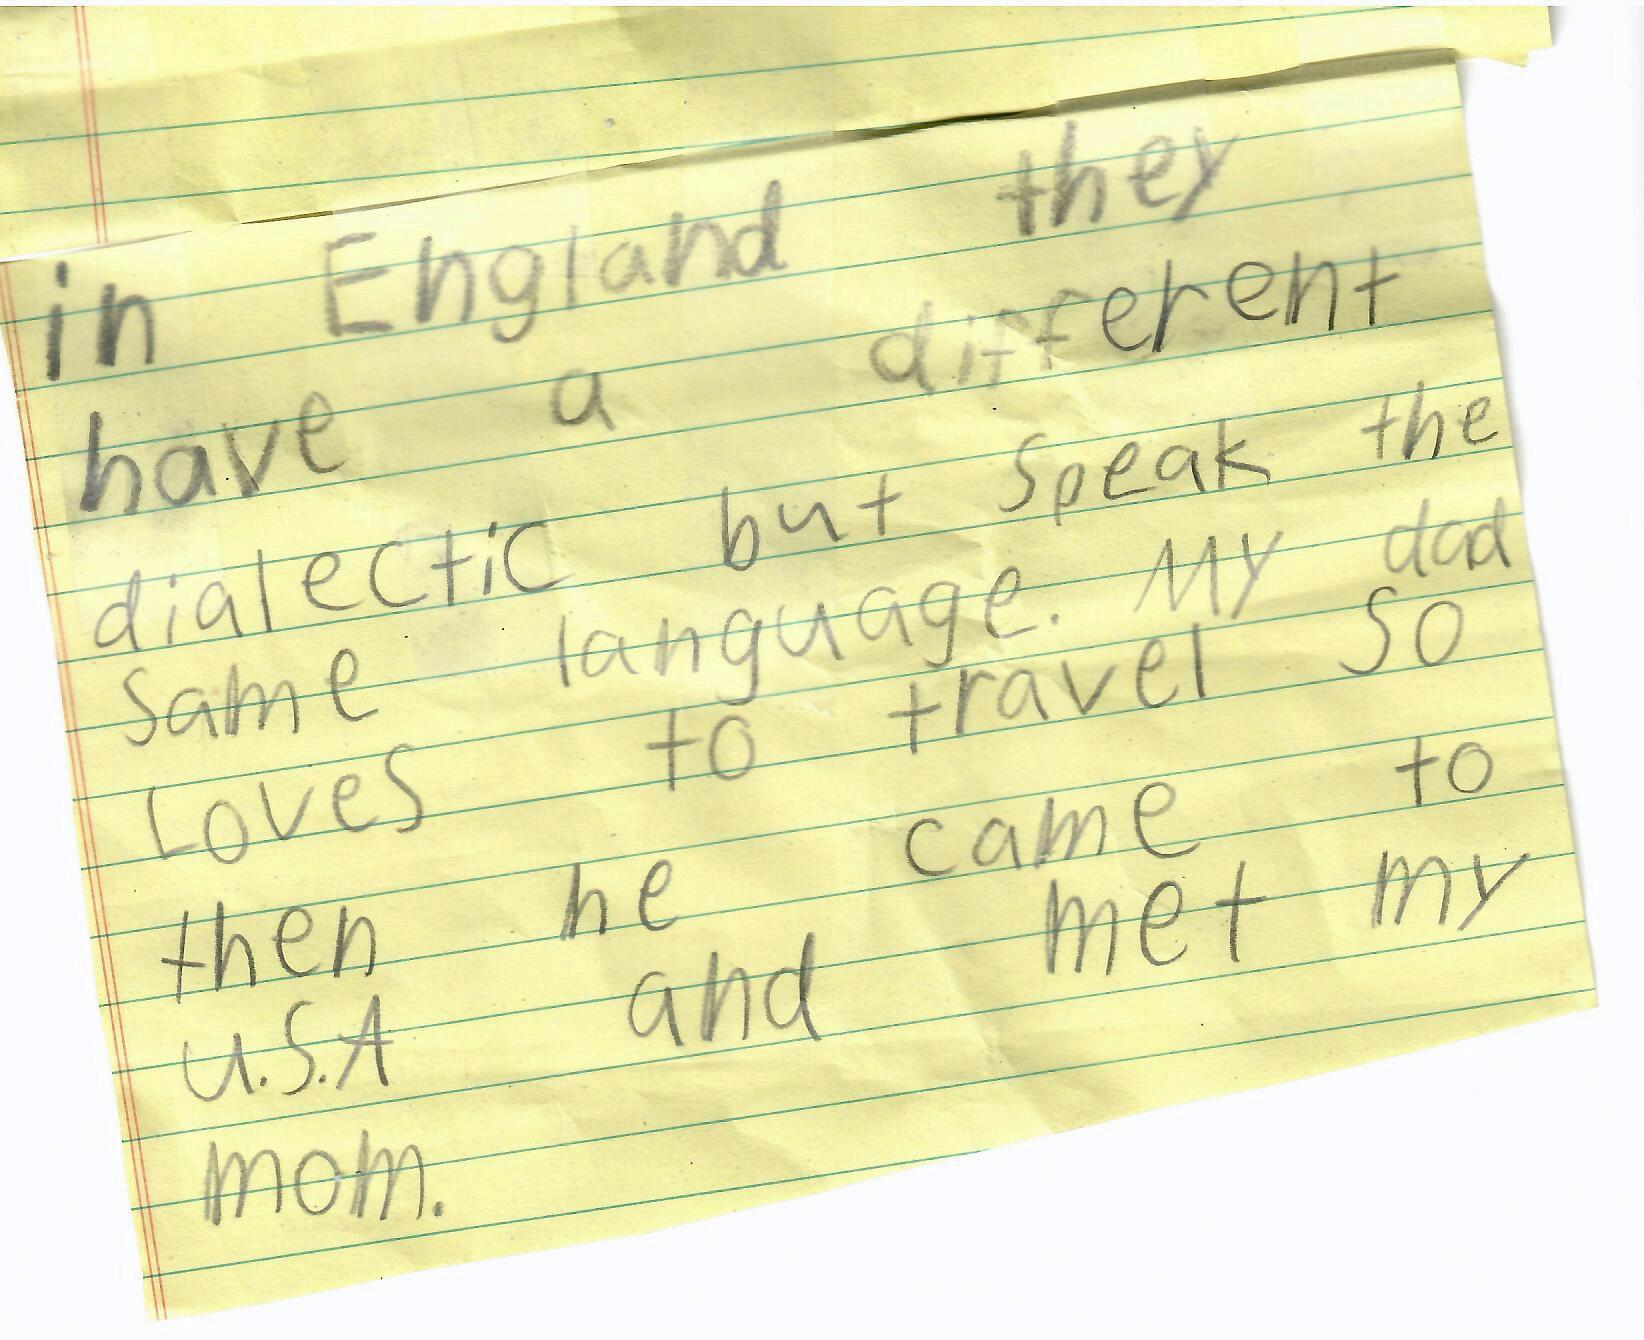 in England they
have a different
dialectic but speak the
same language. My dad
Loves to travel so
then he came to
U.S.A and met my
mom.